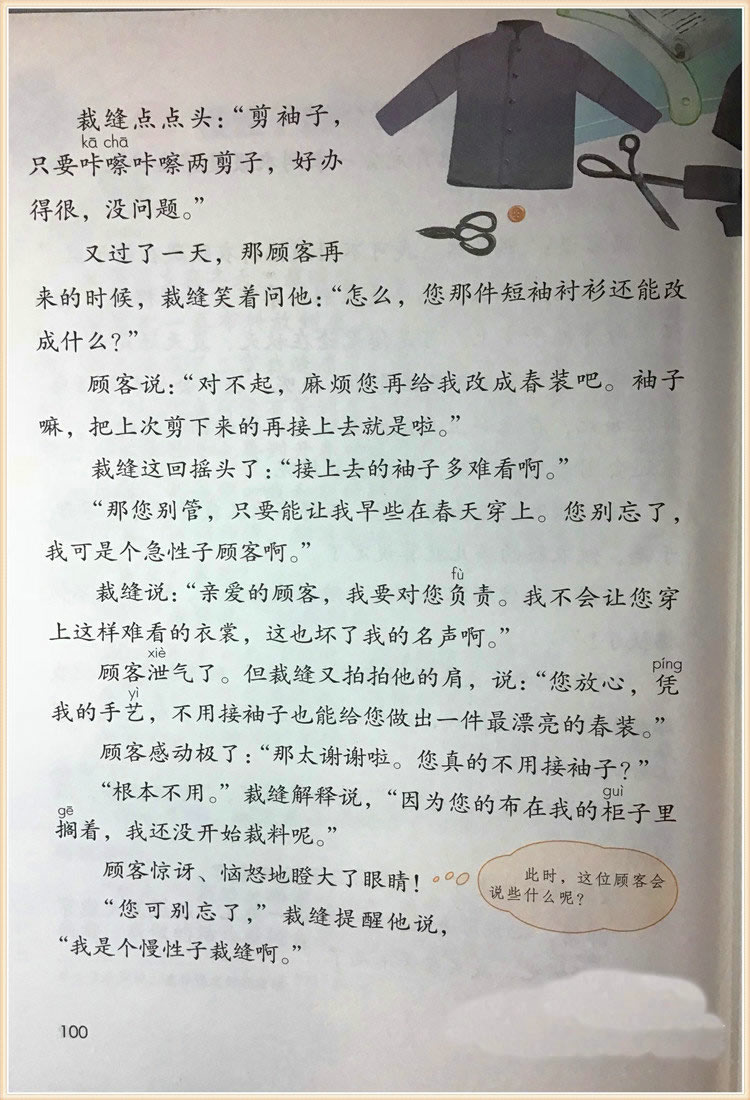 裁缝点点头：“剪袖子，
kā chā
只要咔嚓咔嚓两剪子，好办
得很，没问题。”
又过了一天，那顾客再
来的时候，裁缝笑着问他：“怎么，您那件短袖衬衫还能改
成什么？”
顾客说：“对不起，麻烦您再给我改成春装吧。袖子
嘛，把上次剪下来的再接上去就是啦。”
裁缝这回摇头了：“接上去的袖子多难看啊。”
“那您别管，只要能让我早些在春天穿上。您别忘了，
我可是个急性子顾客啊。”
fù
裁缝说：“亲爱的顾客，我要对您负责。我不会让您穿
上这样难看的衣裳，这也坏了我的名声啊。”
xiè píng
顾客泄气了。但裁缝又拍拍他的肩，说：“您放心，凭
yì
我的手艺，不用接袖子也能给您做出一件最漂亮的春装。”
顾客感动极了：“那太谢谢啦。您真的不用接袖子？”
guì
“根本不用。”裁缝解释说，“因为您的布在我的柜子里
gē
搁着，我还没开始裁料呢。”
顾客惊讶、恼怒地瞪大了眼睛！
此时，这位顾客会
说些什么呢？
“您可别忘了，”裁缝提醒他说，
“我是个慢性子裁缝啊。”
100